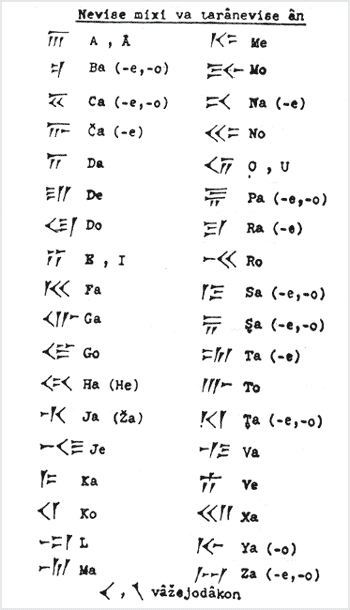 Nevise mixi va tarânevise ân
𐎠 A , Â
𐎲 Ba (-e,-o)
𐏂 Ca (-e,-o)
𐎨 Ča (-e)
𐎭 Da
𐎮 De
𐎯 Do
𐎡 E , I
𐎳 Fa
𐎥 Ga
𐎦 Go
𐏃 Ha (He)
𐎩 Ja (Ža)
𐎪 Je
𐎣 Ka
𐎤 Ko
𐎾 L
𐎶 Ma
𐎷 Me
𐎸 Mo
𐎴 Na (-e)
𐎵 No
𐎢 Ọ , U
𐎱 Pa (-e,-o)
𐎼 Ra (-e)
𐎽 Ro
𐎿 Sa (-e,-o)
𐏁 Şa (-e,-o)
𐎫 Ta (-e)
𐎬 To
𐎰 Ţa (-e,-o)
𐎺 Va
𐎻 Ve
𐎧 Xa
𐎹 Ya (-o)
𐏀 Za (-e,-o)
𐏐 vâžejodâkon